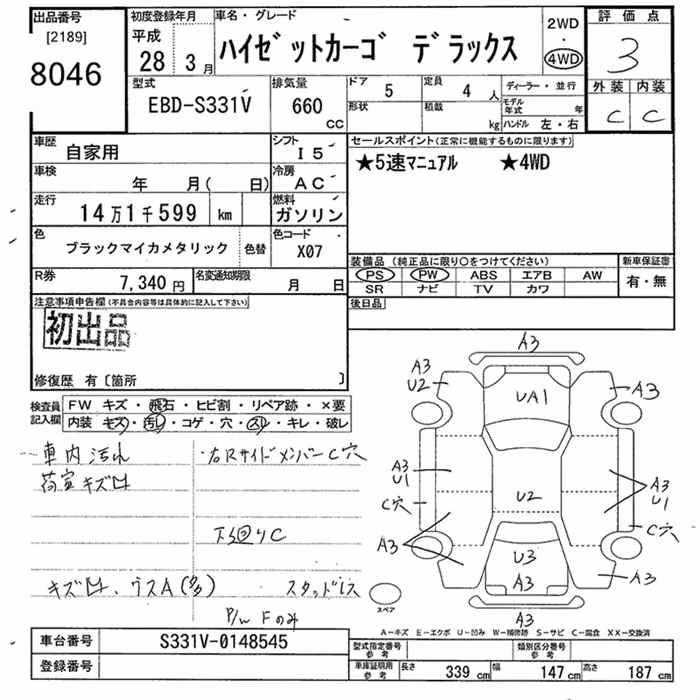 出品番号
[2189]
8046
初度登録年月
平成
28 3月
車名・グレード
ハイゼットカーゴ デラックス
2WD
・
4WD
評価点
3
外装 内装
C C
型式
EBD-S331V
排気量
660
CC
ドア
5
定員
4 人
形状
積載
kg
ディーラー・並行
モデル年式 年
ハンドル 左・右
車歴
自家用
シフト
I5
車検
年 月( 日)
冷房
AC
走行
14万1千599 km
燃料
ガソリン
色
ブラックマイカメタリック
色替
色コード
X07
R券
7,340円
名変通知期限
月 日
セールスポイント(正常に機能するものに限ります)
★5速マニュアル ★4WD
装備品(純正品に限り○をつけてください)
PS PW ABS エアB AW
SR ナビ TV カワ
新車保証書
有・無
後日品
注意事項申告欄(不具合内容等は具体的に記入して下さい)
初出品
修復歴 有〔箇所 〕
検査員
記入欄
FW キズ・飛石・ヒビ割・リペア跡・×要
内装 キズ・汚れ・コゲ・穴・スレ・キレ・破レ
車内汚れ
荷室キズ凹
・右Rサイドメンバー C穴
下回りC
キズ凹、ウスA(多) スタッドレス
P/W Fのみ
A3
A3
U2
UA1
A3
A3
U1
C穴
U2
A3
U1
C穴
A3
U3
A3
A3
A3
スペア
A−キズ E−エクボ U−凹み W−補修跡 S−サビ C−腐食 XX−交換済
車台番号
S331V-0148545
登録番号
型式指定番号
参考
類別区分番号
参考
車庫証明用
参考
長さ 339 cm 幅 147 cm 高さ 187 cm